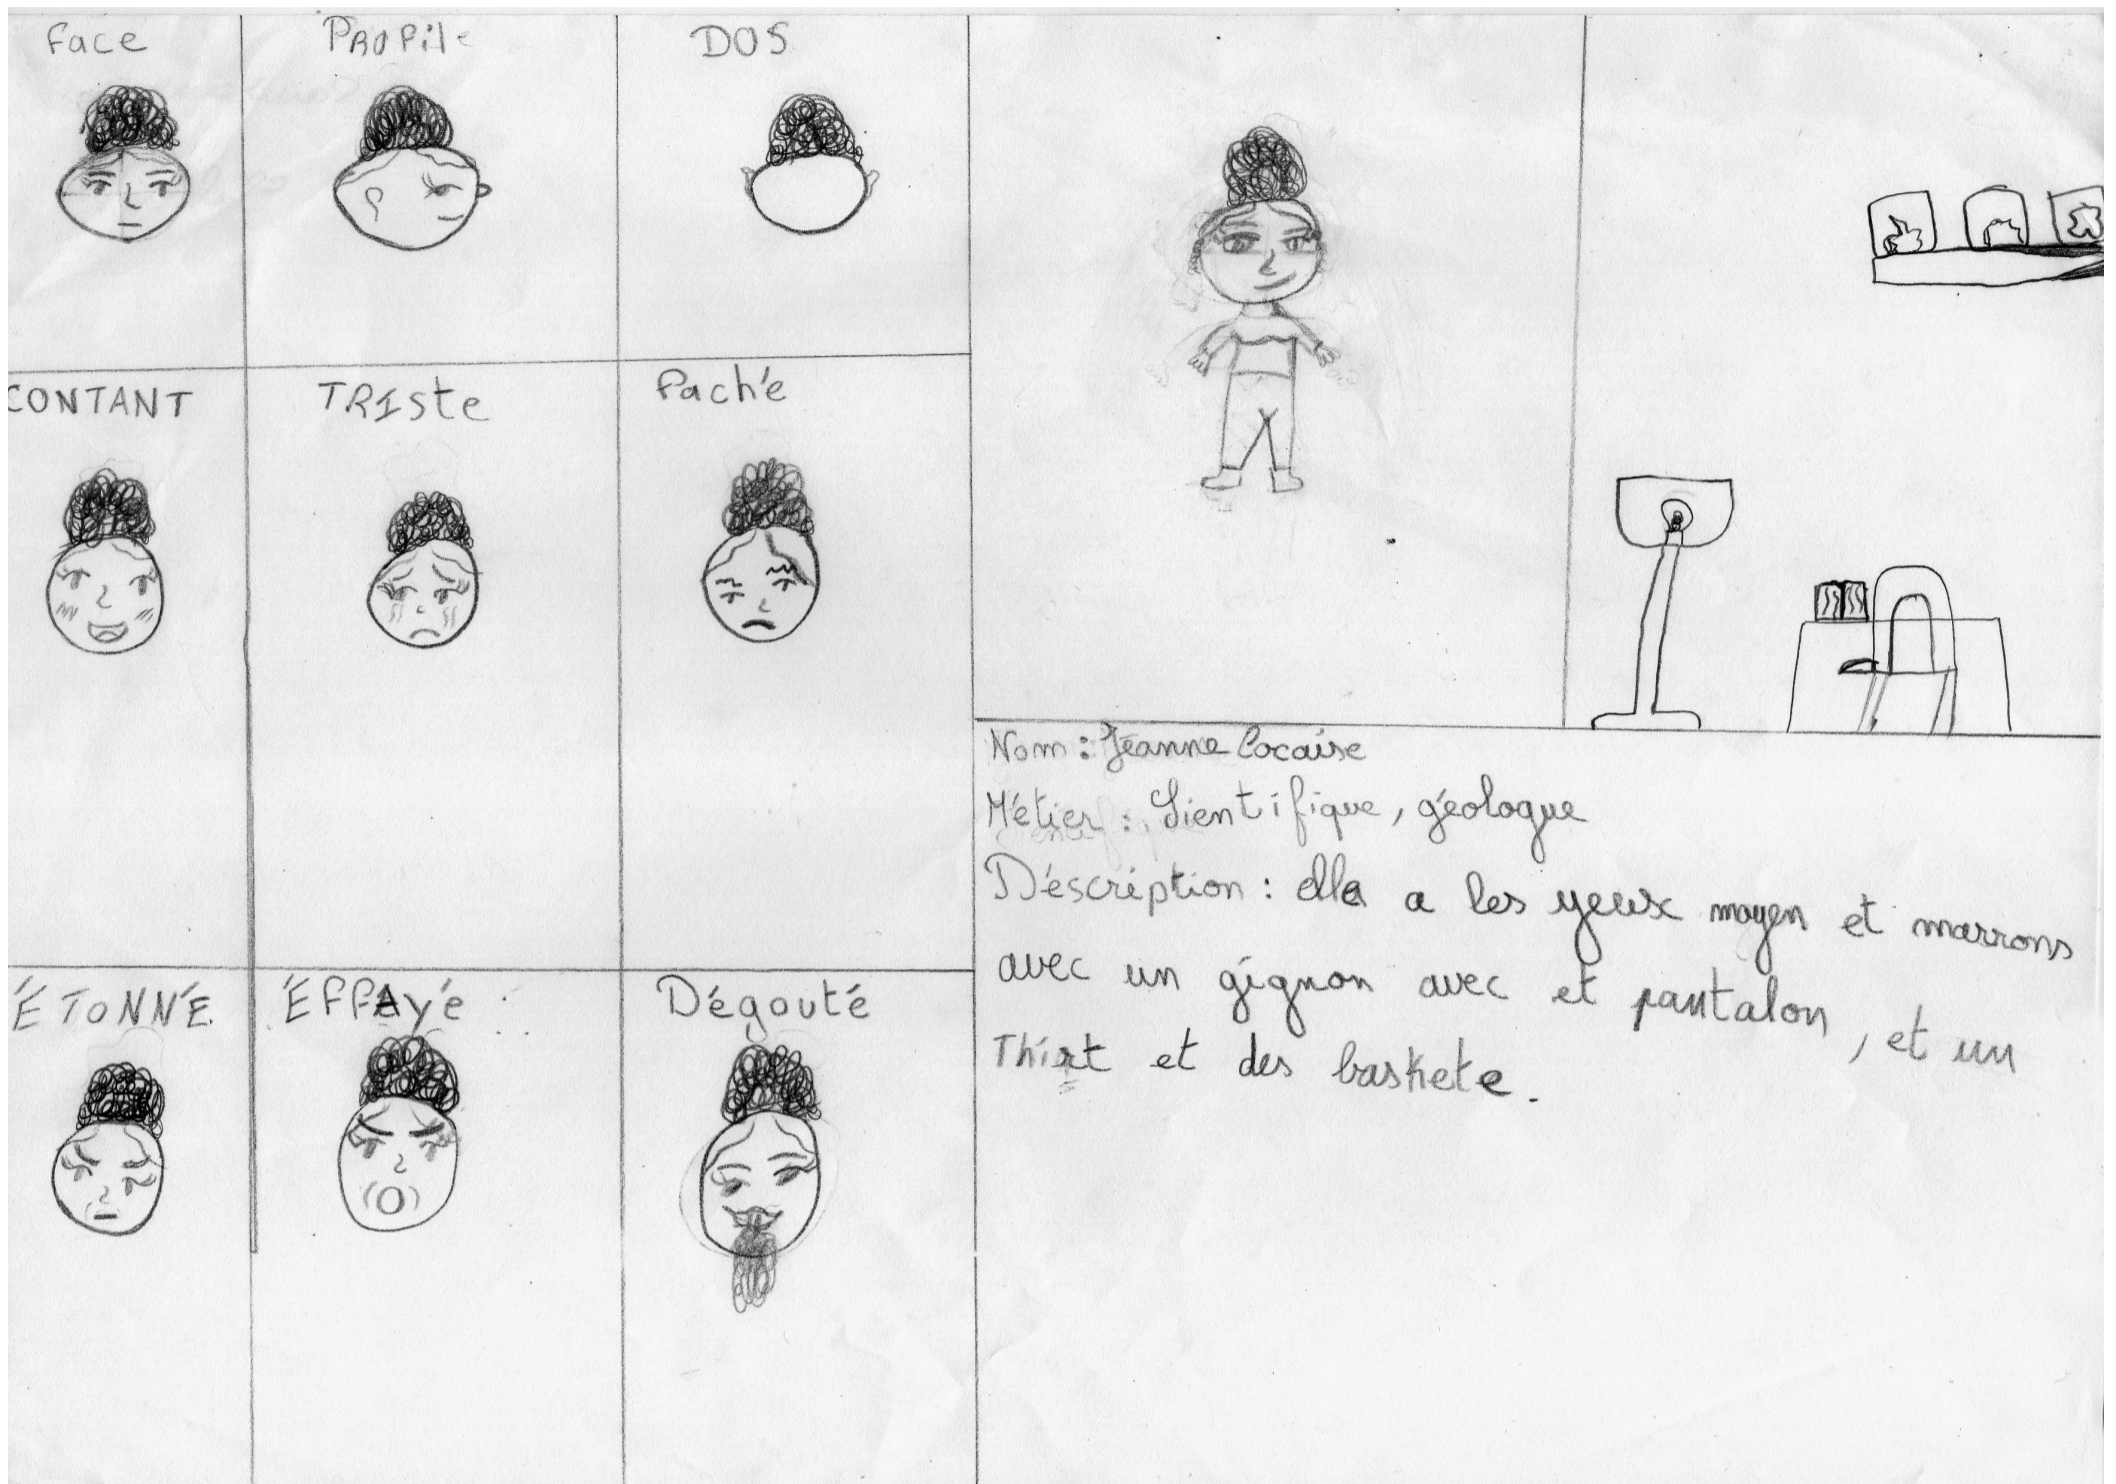 face
PROfile
DOS
CONTANT
TRISte
faché
ÉTONNÉ
ÉffAyé
Dégouté
Nom : Jeanne Cocaise
Métier : Sientifique, géologue
Déscréption : elle a les yeux moyen et marrons
avec un gignon avec et pantalon, et un
Thirt et des baskete.